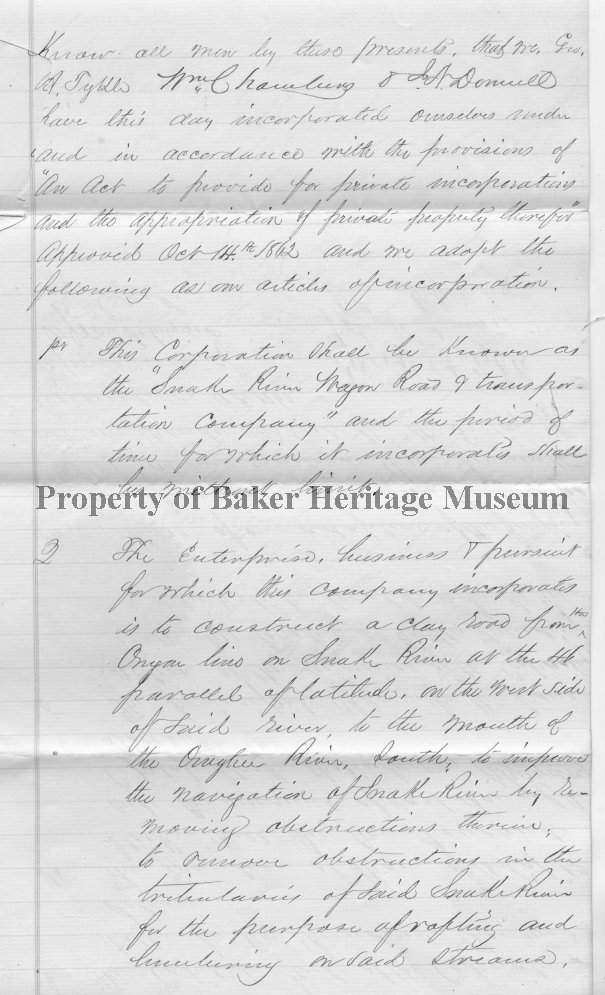 Know all men by these presents, that we, Geo.
H. Tykle Wm Chambers & J. N. Donnell
have this day incorporated ourselves under
and in accordance with the provisions of
"An Act to provide for private incorporations
and the appropriation of private property therefor"
Approved Oct 14th 1862 and we adopt the
following as our articles of incorporation.
1st This Corporation shall be Known as
the "Snake River Wagon Road & transpor-
tation company" and the period of
time for which it incorporates shall
be without limit.
Property of Baker Heritage Museum
2 The Enterprise, business & pursuit
for which this company incorporates
is to construct a clay road from the
Oregon line on Snake River at the 46
parallel of latitude, on the West side
of Said river, to the Mouth of
the Owyhee River, South, to improve
the navigation of Snake River by re-
moving obstructions therein,
to remove obstructions in the
tributaries of Said Snake River
for the purpose of rafting and
lumbering on said streams.